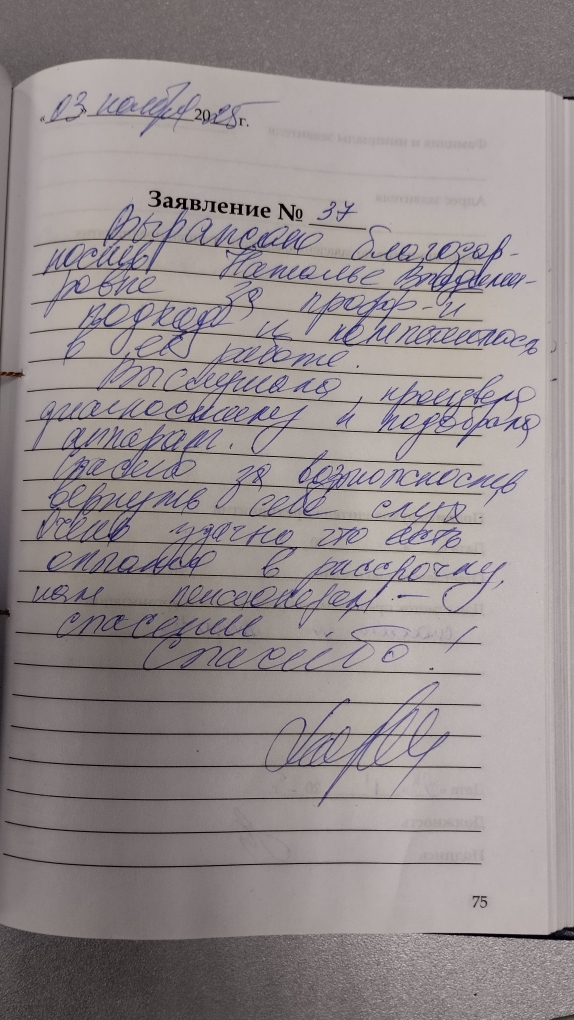 «03» ноября 2025 г.
Заявление № 37
Выражаю благодар-
ность Наталье Владими-
ровне за проф-й
подход и компетентность
в её работе.
Выслушала, произвела
диагностику и подобрала
аппарат.
Спасибо за возможность
вернуть себе слух
Очень удачно что есть
оплата в рассрочку,
нам пенсионерам –
спасение
Спасибо!
75